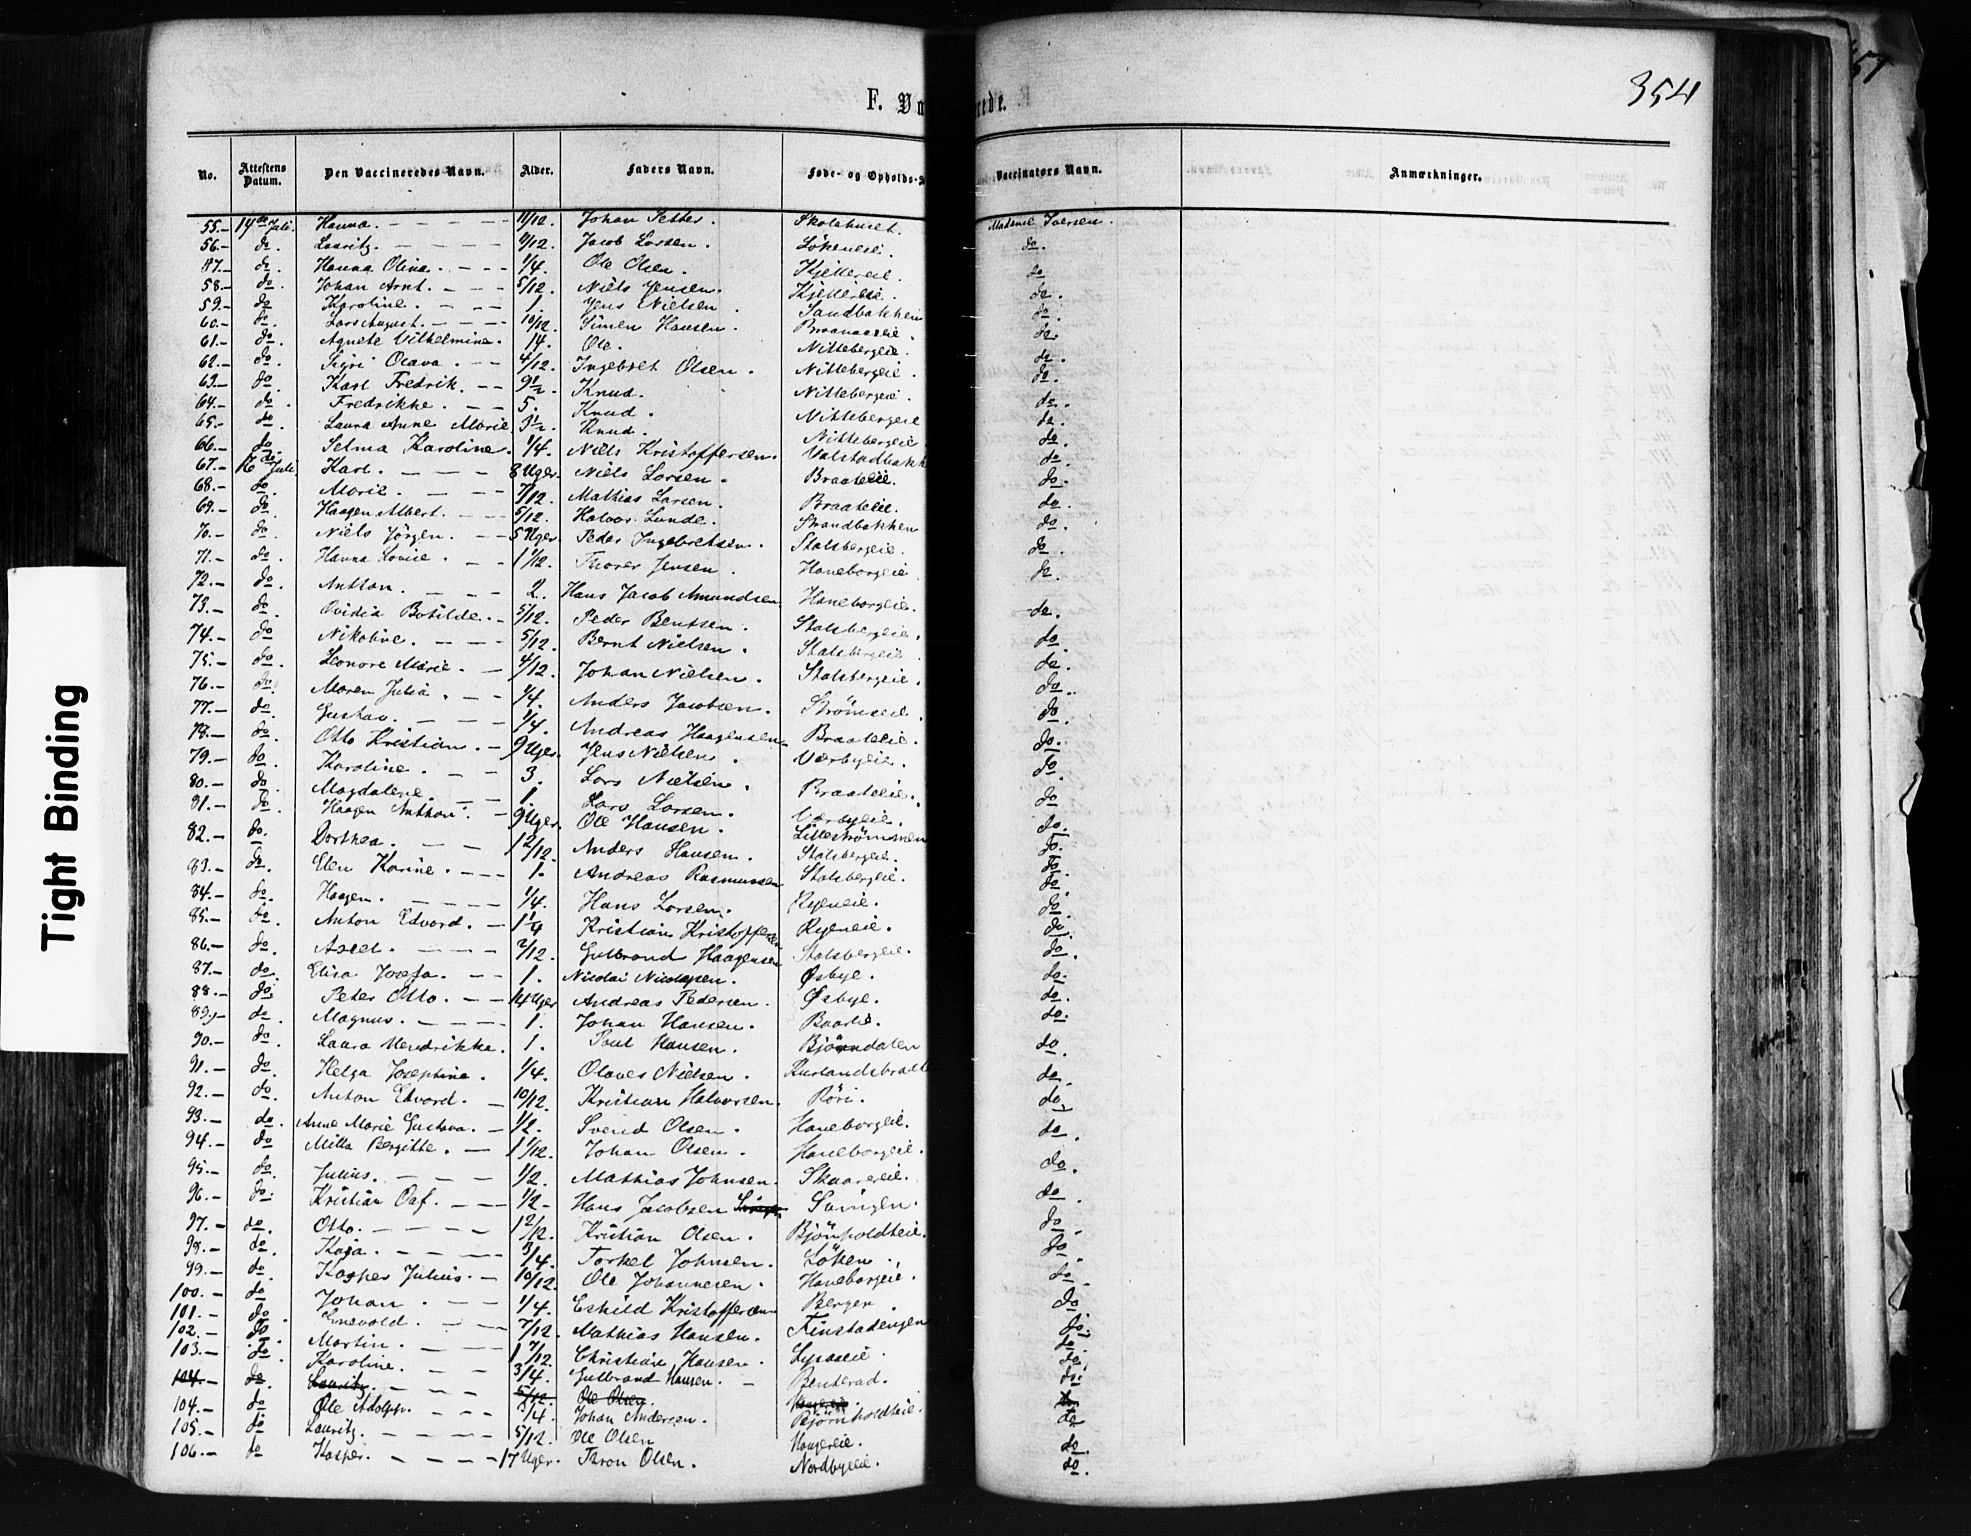 354
57
F. Va
rede.
Tight Binding
No. Attestens Datum. Den Vaccineredes Navn. Alder. Faders Navn. Føde- og Opholds- Vaccinators Navn. Anmærkninger.
55.- 14de Juli. Hanna. 11/12. Johan Petter. Skolehuset. Madame Iversen.
56.- do. Lauritz. 9/12. Jacob Larsen. Lökeneie. do.
87.- do. Hanna Olina. 1/4. Ole Olsen. Kjellereie. do
58.- do. Johan Arnt. 5/12. Niels Jensen. Kjellereie. do.
59.- do Karoline. 1. Jens Nielsen. Sandbakken do.
60.- do. Lars August. 10/12. Simen Hansen. Braanaaseie do.
61.- do. Agnete Vilhelmine. 14. Ole. Nittebergeie. do.
62.- do. Sigri Olava. 4/12. Ingebret Olsen. Nittebergeie. do.
63.- do. Karl Fredrik. 9 1/2. Knud. Nittebergeie. do.
64.- do. Fredrikke. 5. Knud. Nittebergeie do.
65.- do. Laura Anne Marie 3 1/2. Knud. Nittebergeie do.
66.- do. Selma Karoline. 1/4. Niels Kristoffersen. Valstadbakk do.
67.- 16de Juli Karl. 8 Uger. Niels Larsen. Braateeie. do.
68.- do. Marie. 7/12. Mathias Larsen. Braateeie. do.
69.- do. Haagen Albert. 5/12. Halvor Lunde. Strandbakken do.
70.- do Niels Jörgen. 5 Uger. Peder Ingebretsen. Stalsbergeie. do.
71.- do. Hanna Lovise. 1 1/12. Thorer Jensen. Haneborgeie do.
72.- do. Anthon. 2. Hans Jacob Amundsen. Haneborgeie. do.
73.- do. Ovidia Botilde. 5/12. Peder Bentsen. Stalsbergeie. do.
74.- do. Nikoline. 5/12. Bernt Nielsen. Stalsbergeie do.
75.- do. Leonore Marie. 4/12. Johan Nielsen. Stalsbergeie. do.
76.- do. Maren Julia. 1/4. Anders Jacobsen. Strömseie. do.
77.- do. Gustav. 1/4. Andreas Haagensen. Braateeie. do.
78.- do. Otto Kristian. 9 Uger. Jens Nielsen. Værbyeie. do.
79.- do. Karoline. 3. Lars Nielsen. Braateeie. do.
80.- do. Magdalene. 1. Lars Larsen. Værbyeie. do.
81.- do. Haagen Anthon. 9 Uger. Ole Hansen. Lilleströmmen do.
82.- do. Dorthea. 1 2/12. Anders Hansen. Stalsbergeie. do.
83.- do. Elen Karine. 1. Andreas Rasmussen Stalsbergeie. do.
84.- do. Haagen. 1/4. Hans Larsen. Ryeneie. do.
85.- do. Anton Edvard. 1 1/4 Kristian Kristoffersen Ryeneie. do.
86.- do. Axel. 2/12. Gulbrand Haagensen Stalsbergeie. do.
87.- do. Elisa Josefa. 1. Nicolai Nicolaysen. Øsbye. do.
88.- do. Peter Otto. 14 Uger Andreas Pedersen. Øsbye. do.
89.- do. Magnus. 1. Johan Hansen. do.
90.- do. Laura Hendrikke. 1. Poul Hansen. Bjørndalen do.
91.- do. Helga Josephine. 1/4. Olaves Nielsen. Kurlandsbraat do.
92.- do. Anton Edvard. 10/12. Kristian Halvorsen. Röri. do.
93.- do. Anne Marie Gustava. 1/2. Svend Olsen. Haneborgeie. do.
94.- do Milla Bergitte. 1 1/12. Johan Olsen. Haneborgeie. do.
95.- do. Julius. 1/2. Mathias Johnsen. Skaarereie. do.
96.- do. Kristian Oaf. 1/2. Hans Jacobsen Svingen. do.
97.- do. Otto. 1 2/12. Kristian Olsen. Bjönholdteie. do.
98.- do. Kaja. 3/4. Torkel Johnsen. Löken. do.
99.- do. Kasper Julius. 10/12. Ole Johannesen. Haneborgeie. do.
100.- do Johan. 1/4. Eskild Kristoffersen Berger. do.
101.- do. Enevold. 7/12. Mathias Hansen. Finstadengen do.
102.- do. Martin. 1 7/12. Christian Hansen. Lysaseie. do.
103.- do. Karoline. 3/4. Gulbrand Hansen. Benterud. do.
104.- do Lauritz. 5/12. Ole Olsen. Haugereie. do
104.- do Ole Adolph. 1/4. Johan Andersen. Bjørnholdteie. do
105.- do Lauritz. 5/12. Ole Olsen Haugereie. do.
106.- do Kasper. 17 Uger. Thron Olsen. Nordbyeie. do.